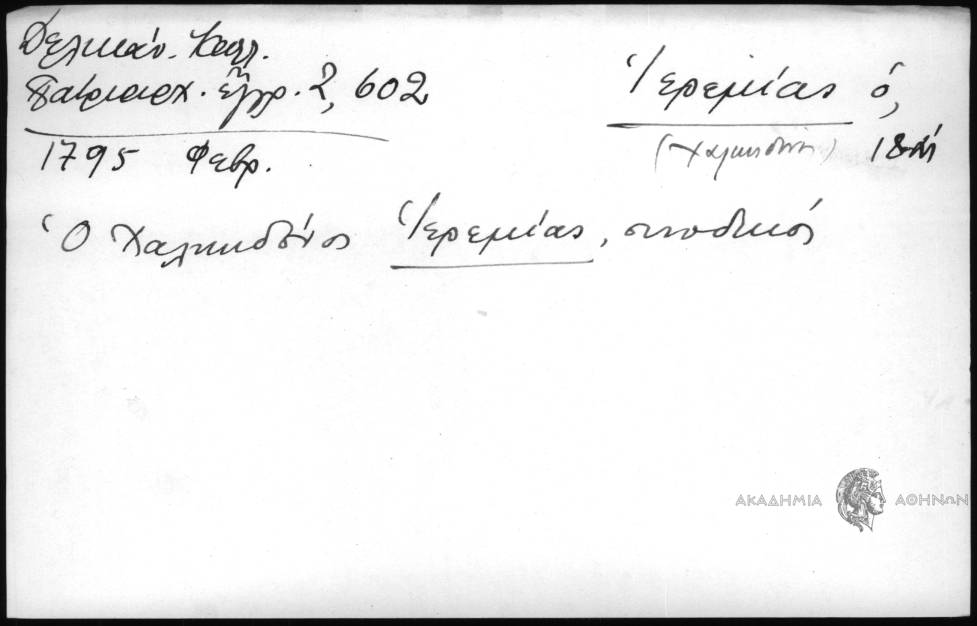 Δελικάν. Καλλ.
Πατριαρχ. ἔγγρ. 2, 602
1795 Φεβρ.
Ἱερεμίας ὁ,
(Χαλκηδόν) 18
Ὁ Χαλκηδόνος Ἱερεμίας, συνοδικός
ΑΚΑΔΗΜΙΑ ΑΘΗΝΩΝ